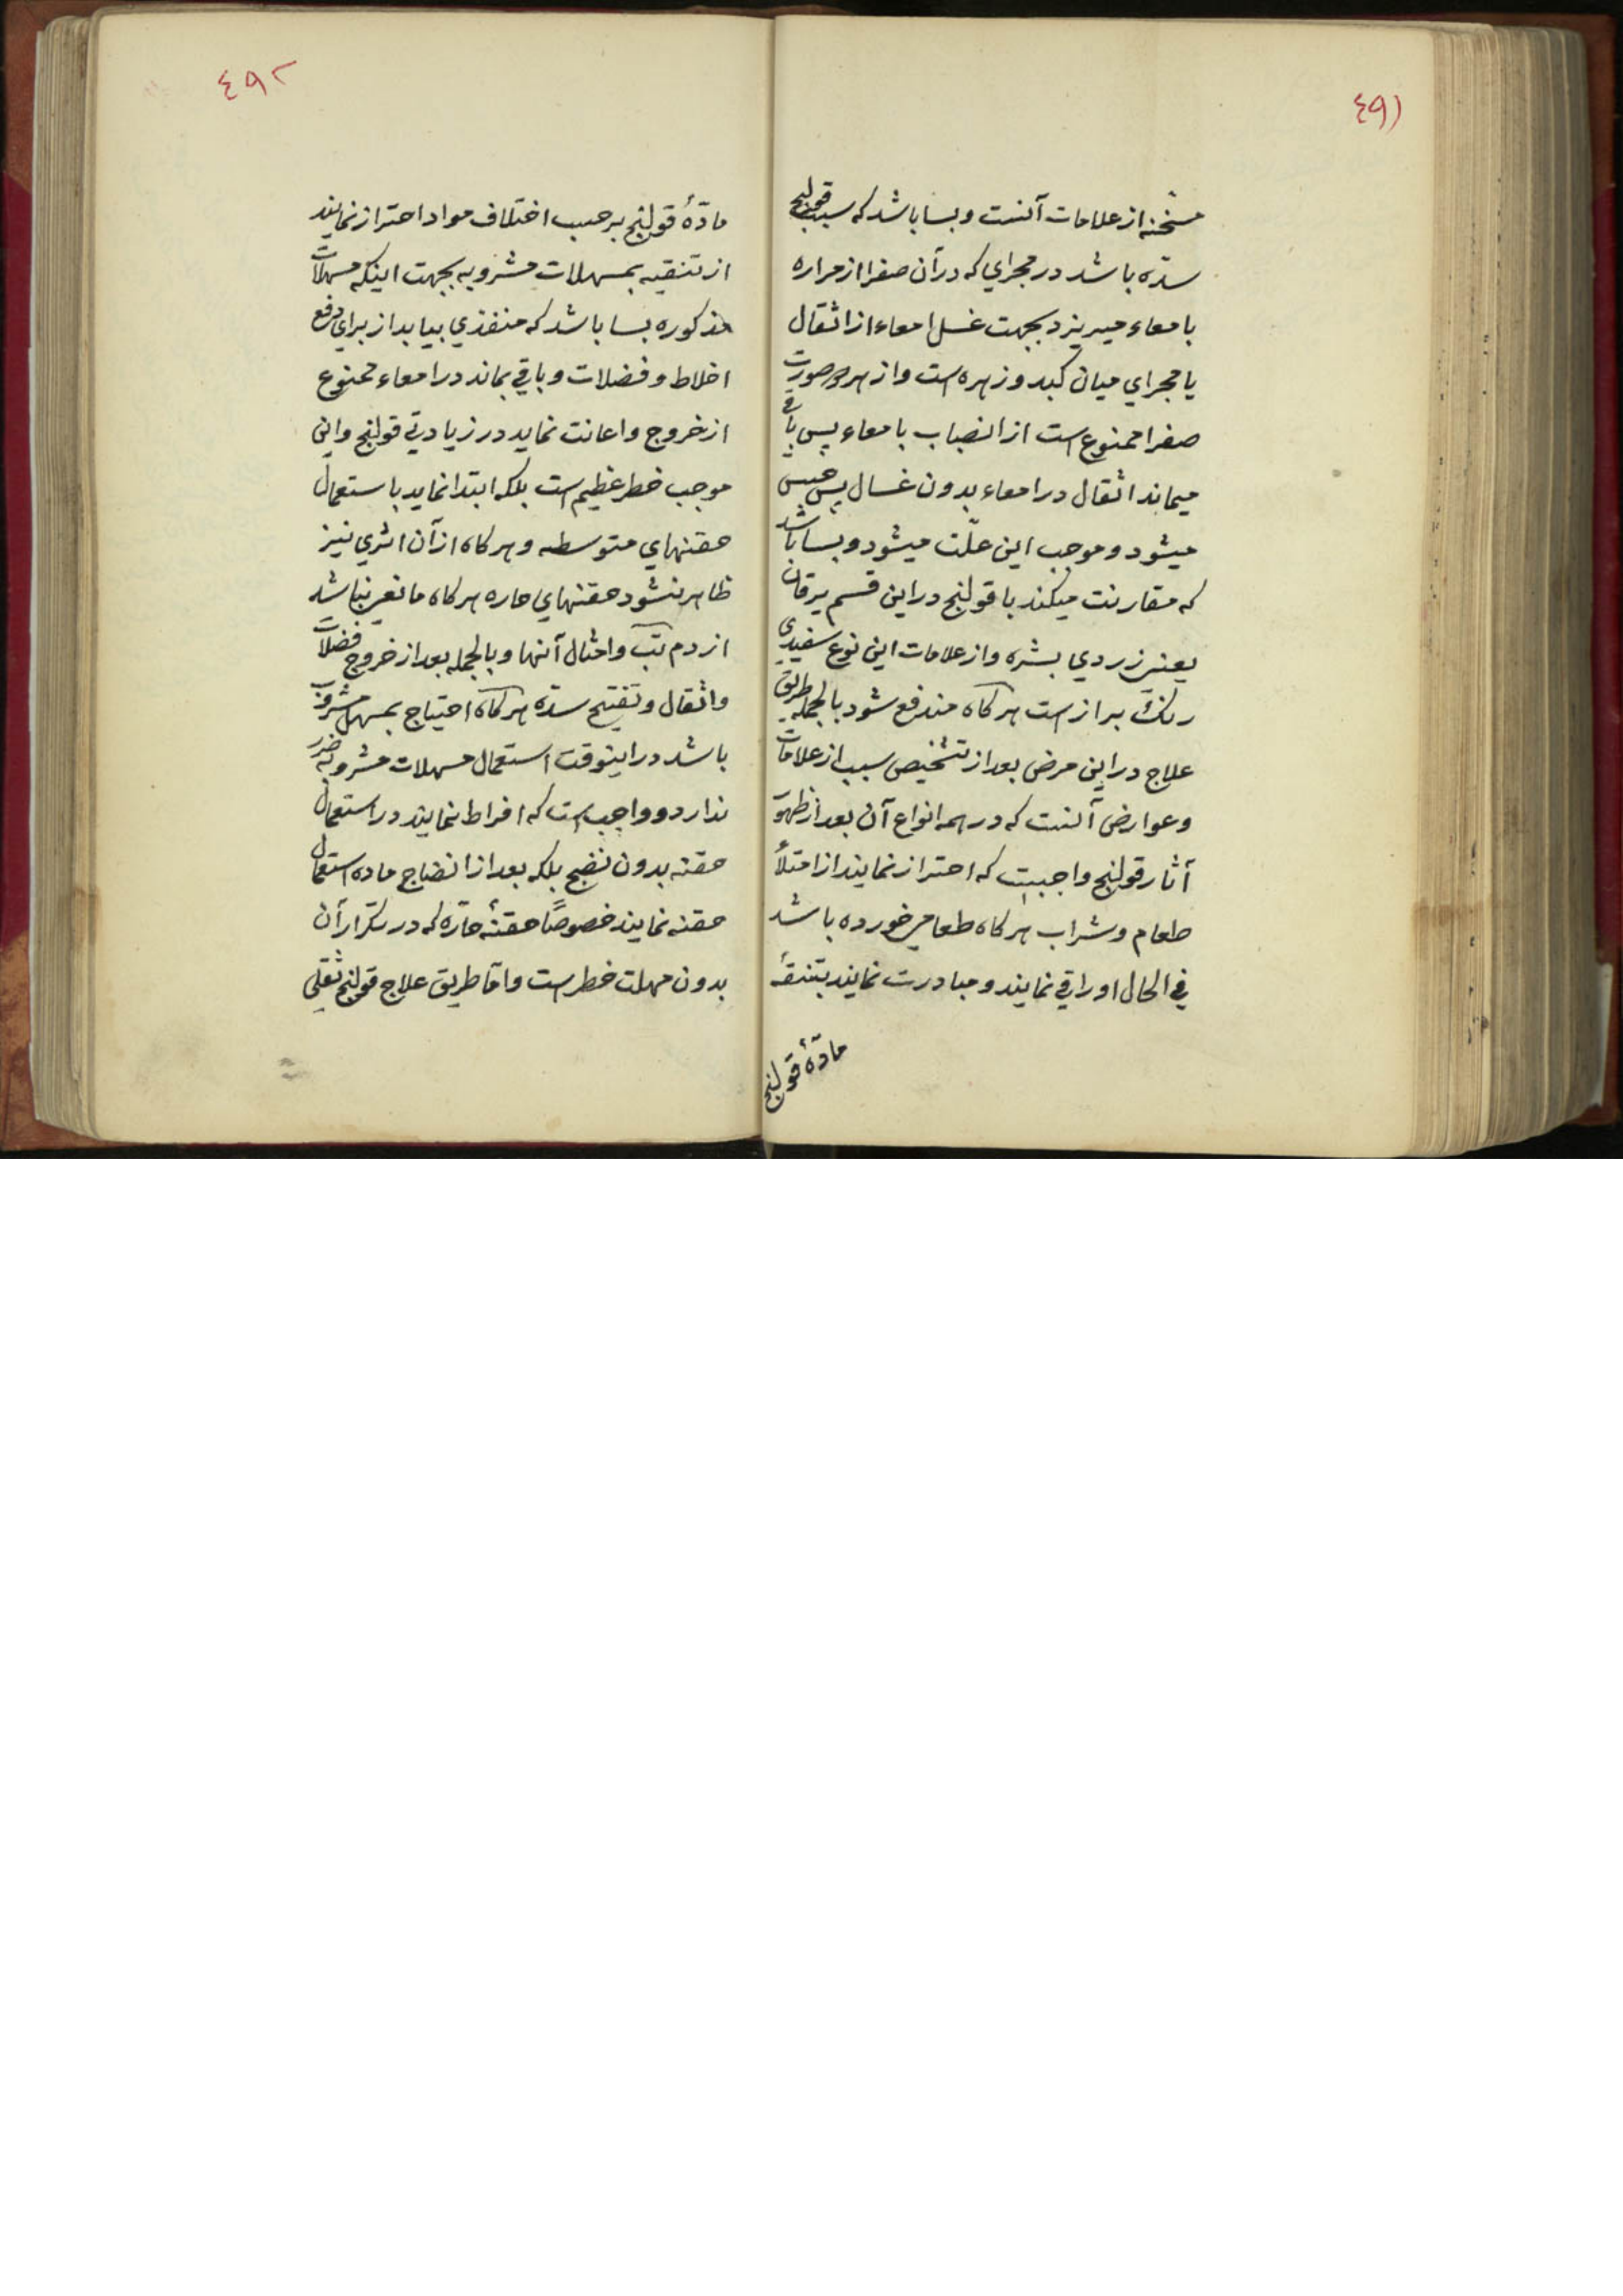 ٤٩١
مسخنه از علامات آنست و بسا باشد که سبب قولنج
سدّه باشد در مجراي که در آن صفرا از مراره
بامعاء میریزد بجهت غسل امعاء از اثقال
یا مجراي میان کبد و زهره است و از هر دو صورت
صفرا ممنوع است از انصباب بامعاء پس باقی
میماند اثقال در امعاء بدون غسال پس حبس
میشود و موجب این علّت میشود و بسا باشد
که مقارنت میکند با قولنج در این قسم یرقان
یعنی زردي بشره و از علامات این نوع سفیدي
رنک براز است هر کاه مندفع شود بالجمله طریق
علاج در این مرض بعد از تشخیص سبب از علامات
و عوارض آنست که در همه انواع آن بعد از ظهور
آثار قولنج واجبست که احتراز نمایند از امتلأ
طعام و شراب هر کاه طعامی خورده باشد
في الحال او را قي نمایند و مبادرت نمایند بتنقۀ
مادّۀ قولنج
٤٩٢
مادّۀ قولنج برحسب اختلاف مواد احتراز نمایند
از تنقیه بمسهلات مشروبه بجهت اینکه مسهلات
مذکوره بسا باشد که منفذي بیابد از براي دفع
اخلاط و فضلات و باقي بماند در امعاء ممنوع
از خروج و اعانت نماید در زیادتي قولنج و این
موجب خطر عظیم است بلکه ابتدا نماید باستعمال
حقنهاي متوسطه و هر کاه از آن اثري نیز
ظاهر نشود حقنهاي حاره هر کاه مانعی نباشد
از دم تب و امثال آنها و بالجمله بعد از خروج فضلات
و اثقال و تفتیح سدّه هر کاه احتیاج بمسهل مشروب
باشد در اینوقت استعمال مسهلات مشروبه ضرر
ندارد و واجب است که افراط ننمایند در استعمال
حقنه بدون نضج بلکه بعد از انضاج ماده استعمال
حقنه نمایند خصوصًا حقنۀ حارّه که در تکرار آن
بدون مهلت خطر است و امّا طریق علاج قولنج ثقلي